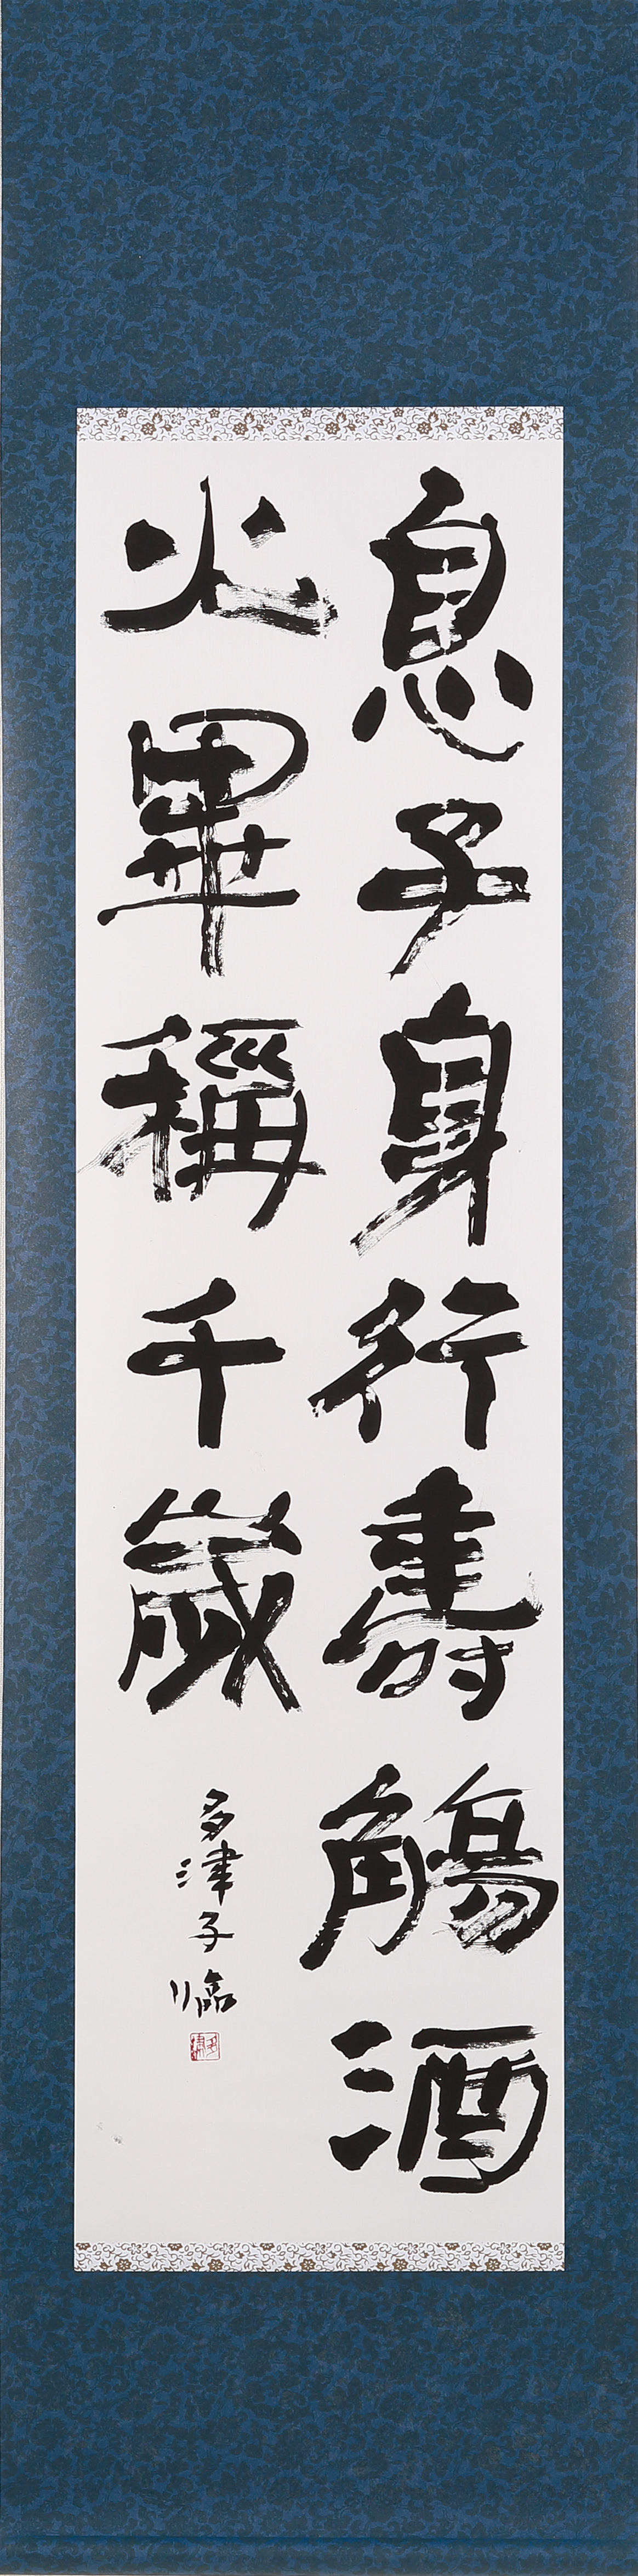 息子身行壽觴酒
火畢稱千歳
多津子臨